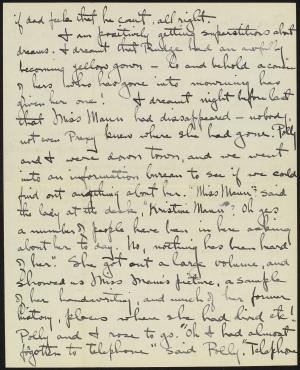 if dad feels that he can't, all right.
I am positively getting superstitious about
dreams. I dreamt that Pudge had an awfully
becoming yellow gown – lo and behold a cousin
of hers, who has gone into mourning has
given her one! I dreamt night before last
that Miss Mann had disappeared – nobody,
not even Prexy knew where she had gone. Polly
and I were down town, and we went
into an information bureau to see if we could
find out anything about her. "Miss Mann?" said
the lady at the desk, "Kristine Mann"? Oh yes
a number of people have been in here asking
about her to-day. No, nothing has been heard
of her." She got out a large volume, and
showed us Miss Mann's picture, a sample
of her handwriting, and much of her former
history, places where she had lived etc!
Polly and I rose to go. "Oh I had almost
forgotten to telephone" said Polly. "Telephone